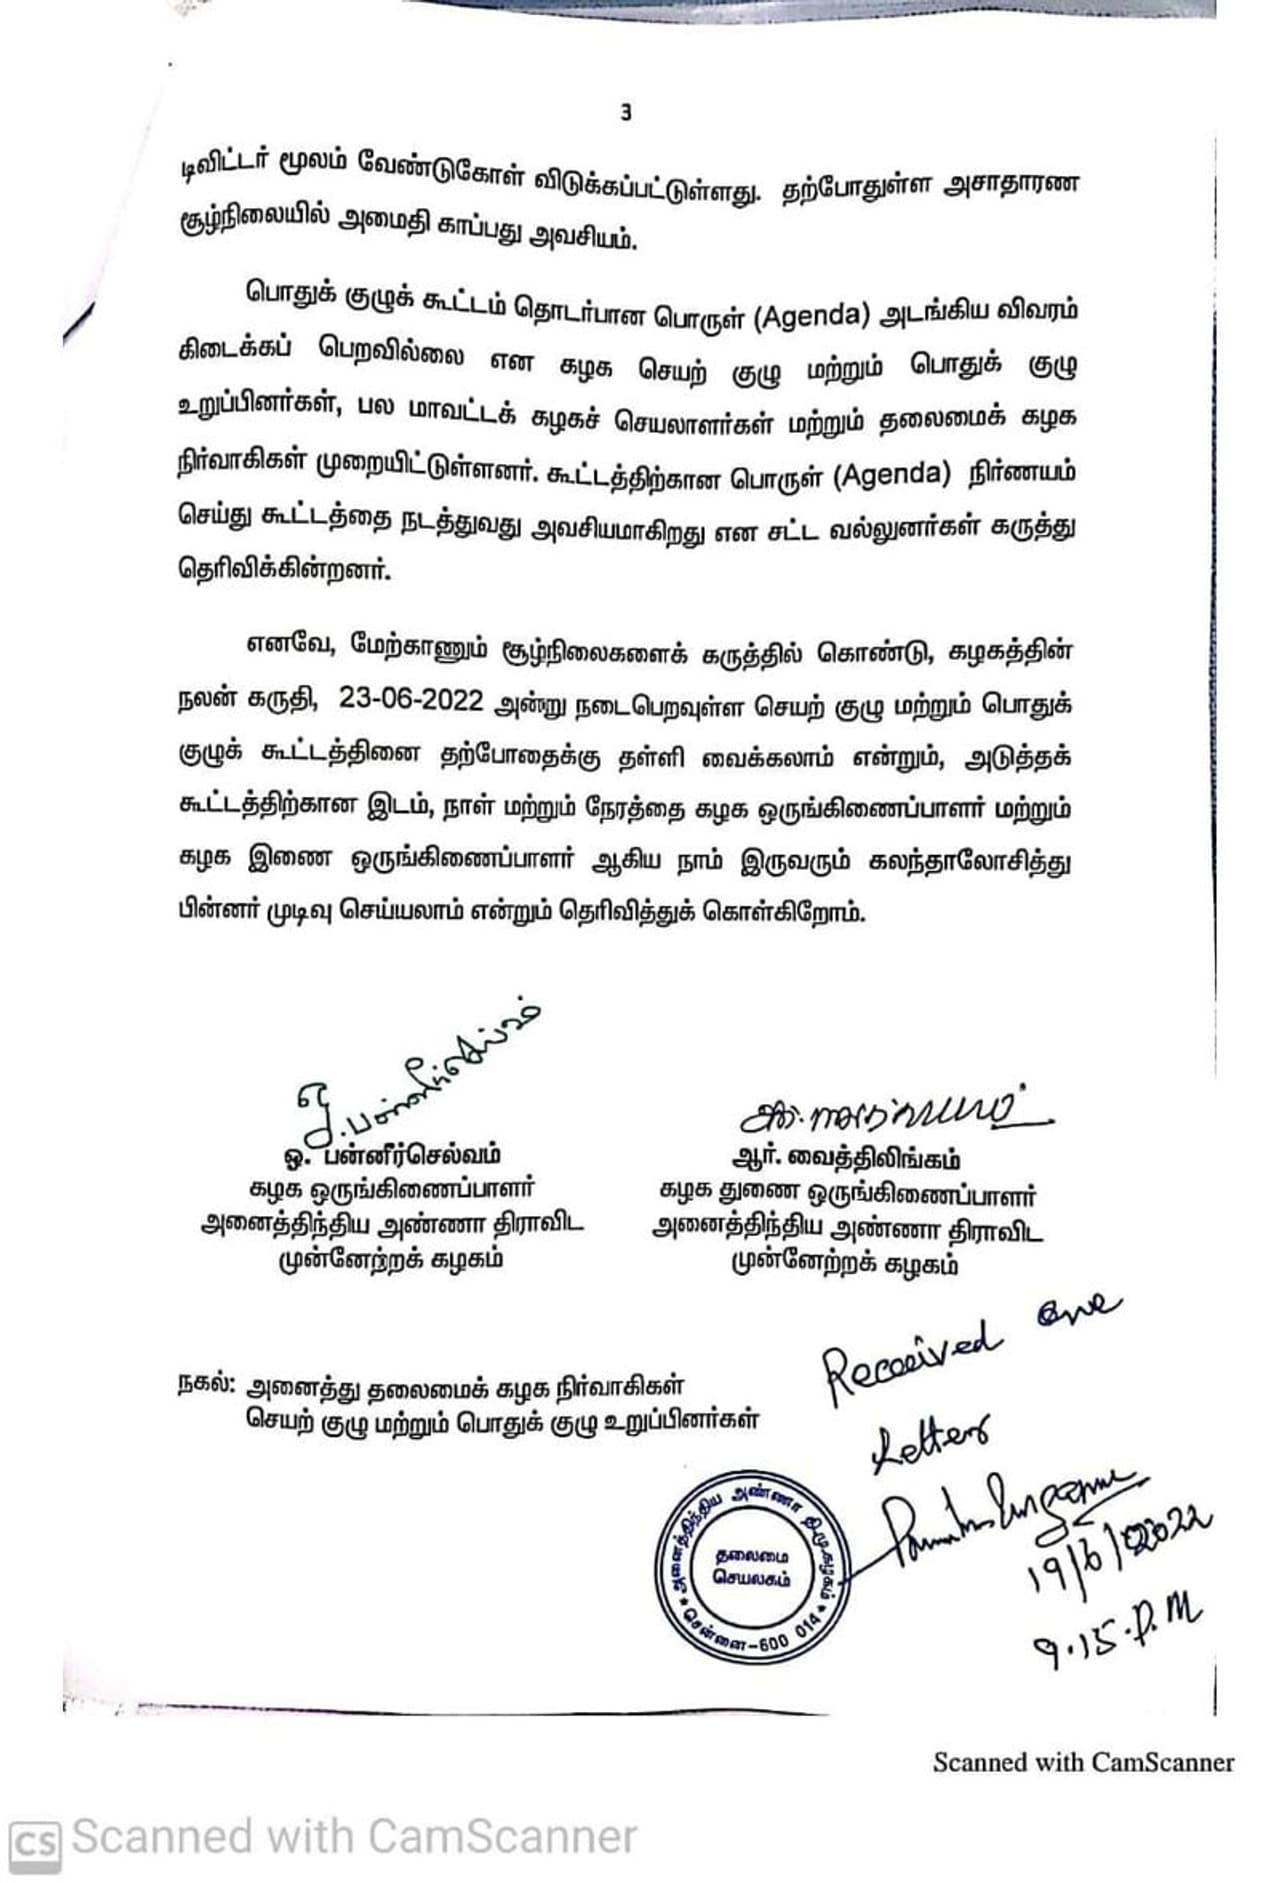 3
டிவிட்டர் மூலம் வேண்டுகோள் விடுக்கப்பட்டுள்ளது. தற்போதுள்ள அசாதாரண
சூழ்நிலையில் அமைதி காப்பது அவசியம்.
பொதுக் குழுக் கூட்டம் தொடர்பான பொருள் (Agenda) அடங்கிய விவரம்
கிடைக்கப் பெறவில்லை என கழக செயற் குழு மற்றும் பொதுக் குழு
உறுப்பினர்கள், பல மாவட்டக் கழகச் செயலாளர்கள் மற்றும் தலைமைக் கழக
நிர்வாகிகள் முறையிட்டுள்ளனர். கூட்டத்திற்கான பொருள் (Agenda) நிர்ணயம்
செய்து கூட்டத்தை நடத்துவது அவசியமாகிறது என சட்ட வல்லுனர்கள் கருத்து
தெரிவிக்கின்றனர்.
எனவே, மேற்காணும் சூழ்நிலைகளைக் கருத்தில் கொண்டு, கழகத்தின்
நலன் கருதி, 23-06-2022 அன்று நடைபெறவுள்ள செயற் குழு மற்றும் பொதுக்
குழுக் கூட்டத்தினை தற்போதைக்கு தள்ளி வைக்கலாம் என்றும், அடுத்தக்
கூட்டத்திற்கான இடம், நாள் மற்றும் நேரத்தை கழக ஒருங்கிணைப்பாளர் மற்றும்
கழக இணை ஒருங்கிணைப்பாளர் ஆகிய நாம் இருவரும் கலந்தாலோசித்து
பின்னர் முடிவு செய்யலாம் என்றும் தெரிவித்துக் கொள்கிறோம்.
ஓ. பன்னீர்செல்வம்
கழக ஒருங்கிணைப்பாளர்
அனைத்திந்திய அண்ணா திராவிட
முன்னேற்றக் கழகம்
ஆர். வைத்திலிங்கம்
கழக துணை ஒருங்கிணைப்பாளர்
அனைத்திந்திய அண்ணா திராவிட
முன்னேற்றக் கழகம்
நகல்: அனைத்து தலைமைக் கழக நிர்வாகிகள்
செயற் குழு மற்றும் பொதுக் குழு உறுப்பினர்கள்
Received one
Letter
19/6/2022
9.15.P.M
அனைத்திந்திய அண்ணா தி.மு.கழகம்
தலைமை
செயலகம்
சென்னை-600 014
Scanned with CamScanner
CS Scanned with CamScanner